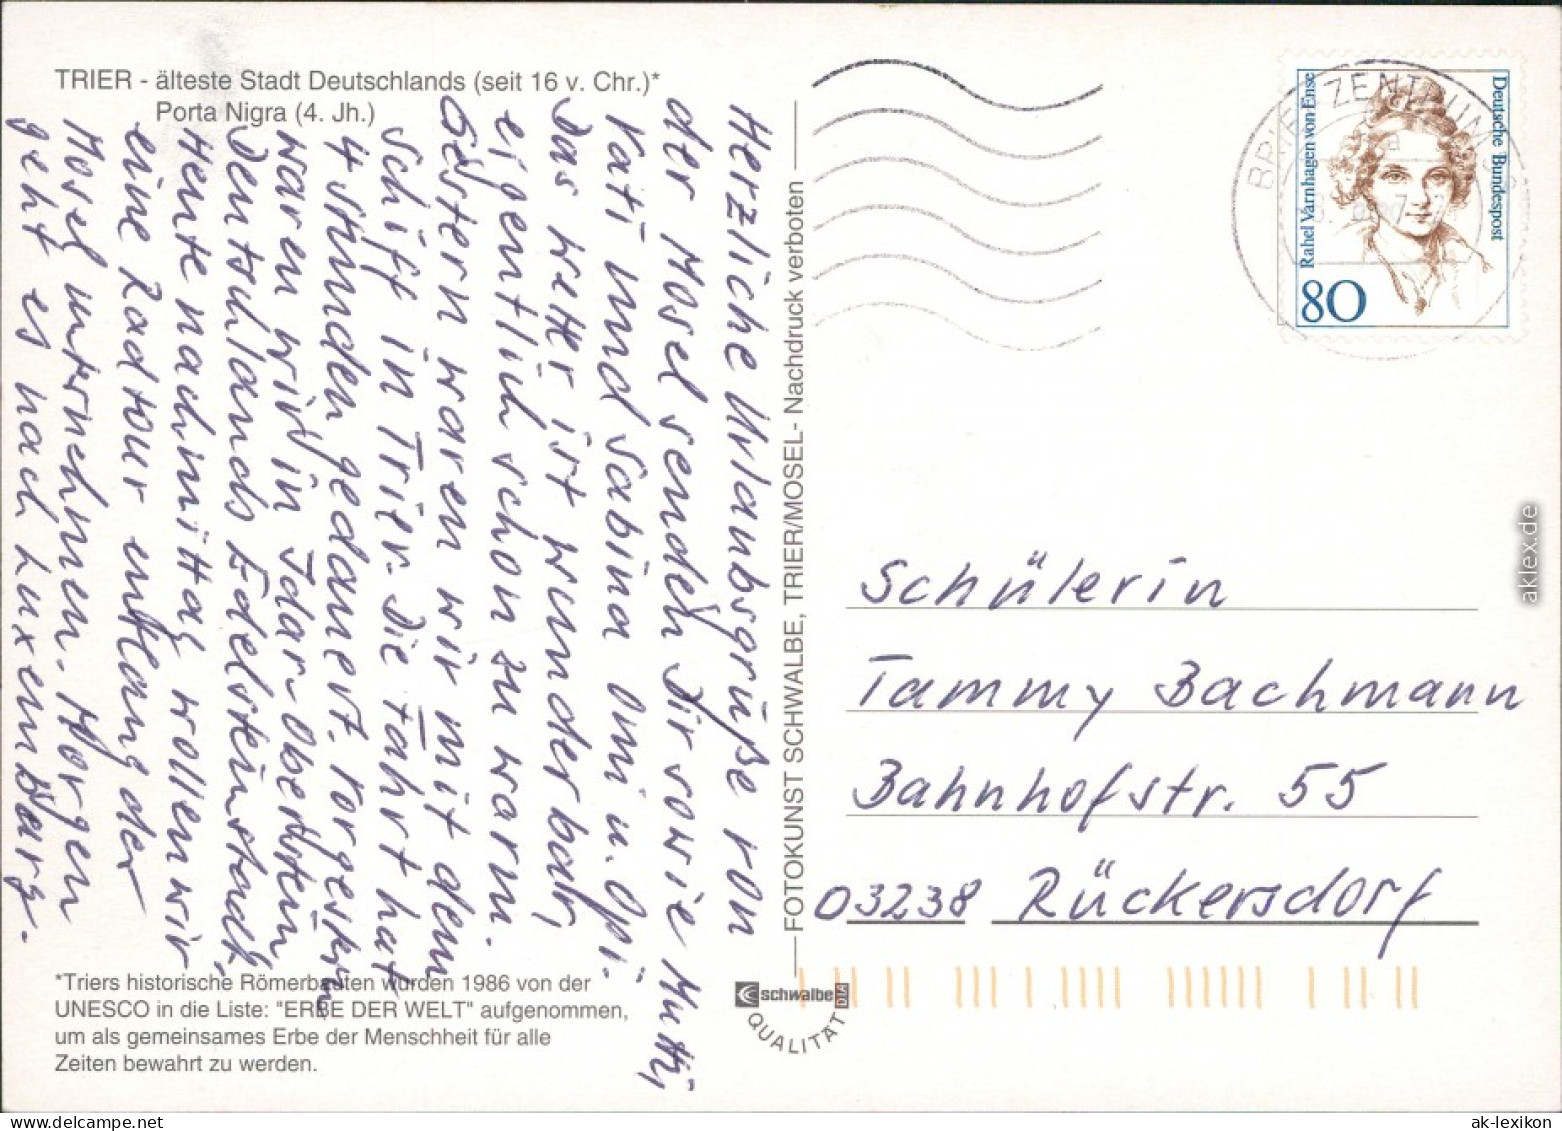 TRIER - älteste Stadt Deutschlands (seit 16 v. Chr.)*
Porta Nigra (4. Jh.)
Herzliche Urlaubsgrüße von
der Mosel senden Dir sowie Mutti,
Kati und Sabina Omi u. Opi.
Das Wetter ist wunderbar,
eigentlich schon zu warm.
Gestern waren wir mit dem
Schiff in Trier. Die Fahrt hat
4 Stunden gedauert. Vorgestern
waren wir in Idar-Oberstein,
Deutschlands Edelsteinstadt.
Heute nachmittag wollen wir
eine Radtour entlang der
Mosel unternehmen. Morgen
geht es nach Luxemburg.
*Triers historische Römerbauten wurden 1986 von der
UNESCO in die Liste: "ERBE DER WELT" aufgenommen,
um als gemeinsames Erbe der Menschheit für alle
Zeiten bewahrt zu werden.
FOTOKUNST SCHWALBE, TRIER/MOSEL- Nachdruck verboten
schwalbe DIA
QUALITÄT
BRIEFZENTRUM
Rahel Varnhagen von Ense
Deutsche Bundespost
80
Schülerin
Tammy Bachmann
Bahnhofstr. 55
03238 Rückersdorf
aklex.de
ak-lexikon